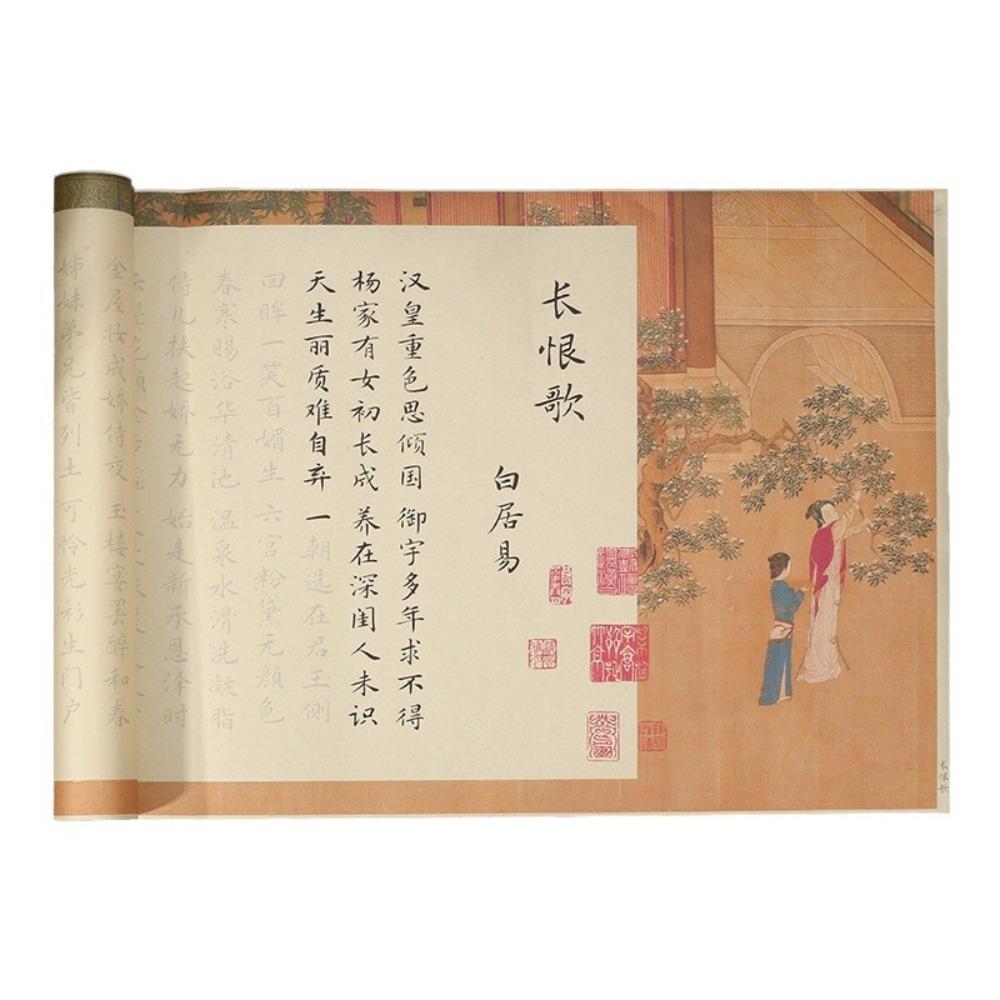 长恨歌
长恨歌
白居易
汉皇重色思倾国 御宇多年求不得
杨家有女初长成 养在深闺人未识
天生丽质难自弃 一朝选在君王侧
回眸一笑百媚生 六宫粉黛无颜色
春寒赐浴华清池 温泉水滑洗凝脂
侍儿扶起娇无力 始是新承恩泽时
金屋妆成娇侍夜 玉楼宴罢醉和春
姊妹弟兄皆列土 可怜光彩生门户